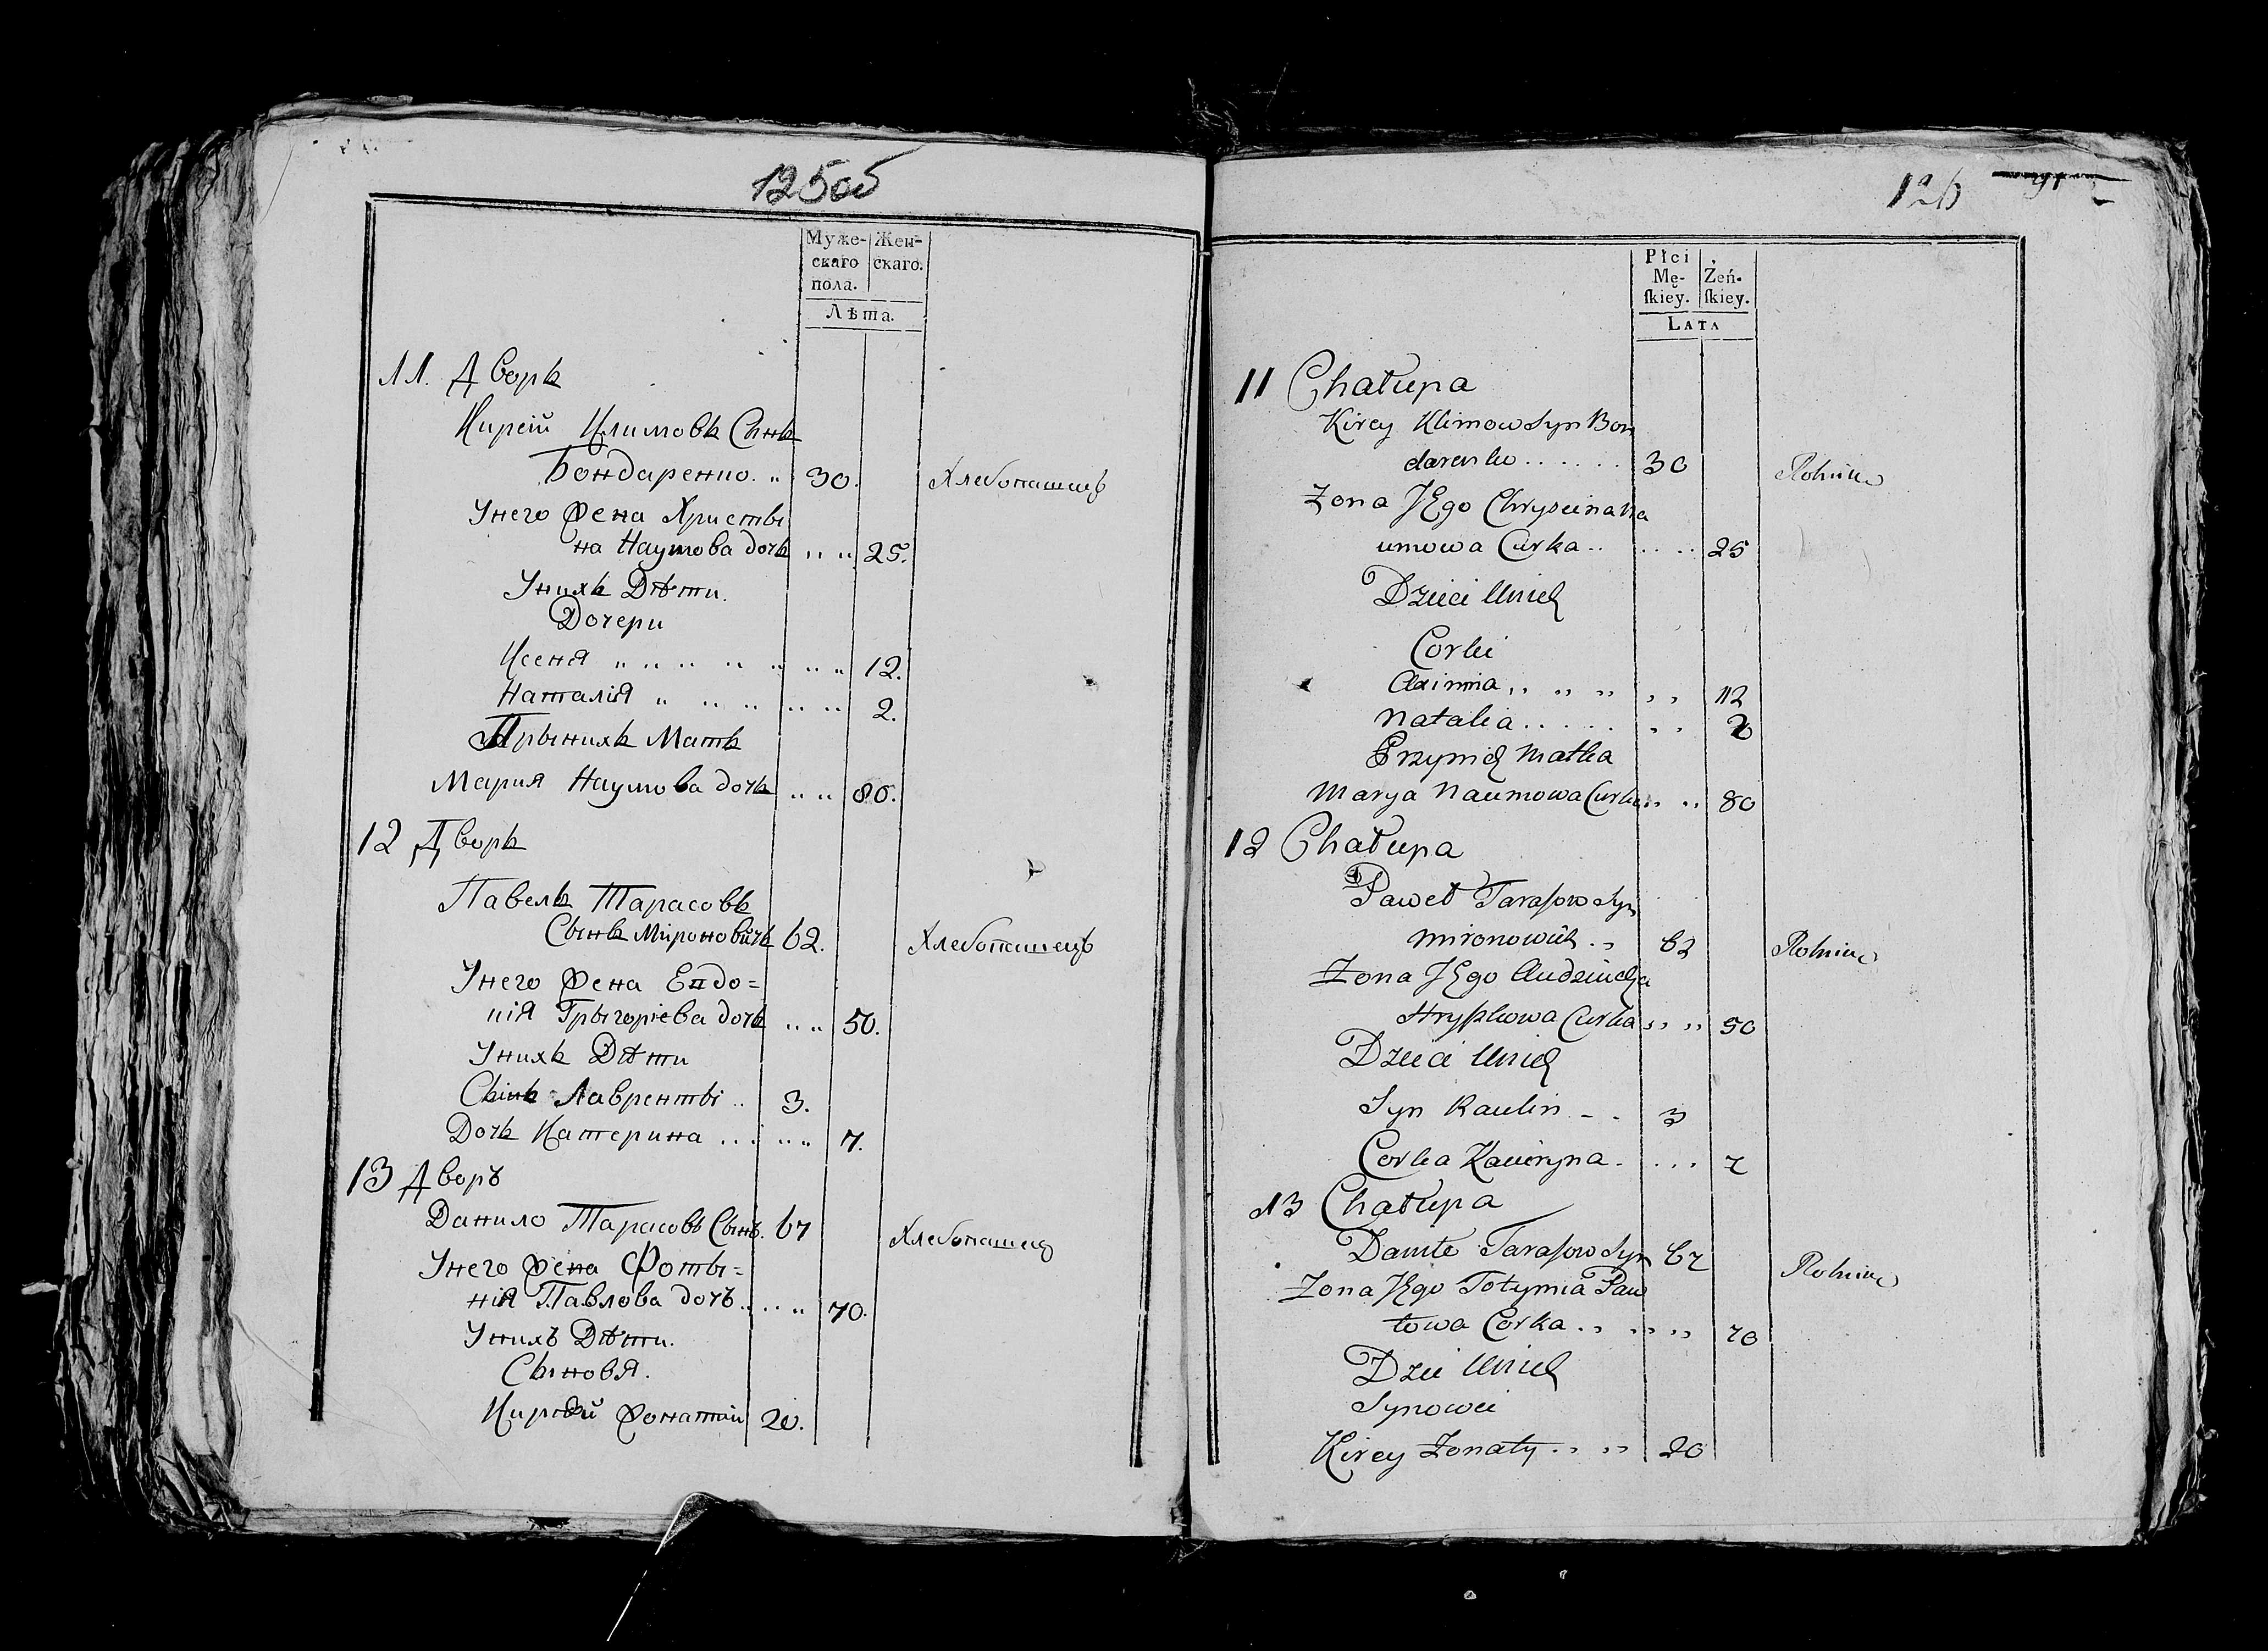 125об
Муже- Жен-
скаго скаго.
пола.
Лѣта.
11. Дворъ
Кирей Климовъ Сынъ
Бондаренко. 30. Хлебопашецъ
Унего жена Христы
на Наумова дочъ 25.
Унихъ Дѣти.
Дочери
Ксеня 12.
Наталія 2.
Прынихъ Матъ
Мария Наумова дочъ 80.
12 Дворъ
Павелъ Тарасовъ
Сынъ Мироновичъ 62. Хлебопашецъ
Унего жена Евдо=
кія Грыгоріева дочъ 50.
Унихъ Дѣти
Сынъ Лавренты 3.
Дочъ Катерина 7.
13 Дворъ
Данило Тарасовъ Сынъ. 67 Хлебопашец
Унего жена Фоты=
нія Павлова дочъ 70.
Унихъ Дѣти.
Сыновя.
Кирей жонатий 20.
126
Płci Żeń-
Mę- ſkiey.
ſkiey.
LATA
11 Chałupa
Kirey Klimow Syn Bon
darenko 30 Rolnik
Zona JEgo Chrystina Na
umowa Curka 25
Dzieci Unich
Corki
Axinia 12
Natalia 2
Przynich Matka
Marya Naumowa Curka 80
12 Chałupa
Paweł Taraſow Syn
Mironowicz 62 Rolnik
Zona JEgo Audziucha
Hryſkowa Curka 50
Dzieci Unich
Syn Raulin 3
Corka Kacieryna 7
13 Chałupa
Daniło Taraſow Syn 67 Rolnik
Zona JEgo Fotynia Paw
łowa Corka 70
Dzie Unich
Synowie
Kirey Zonaty 20